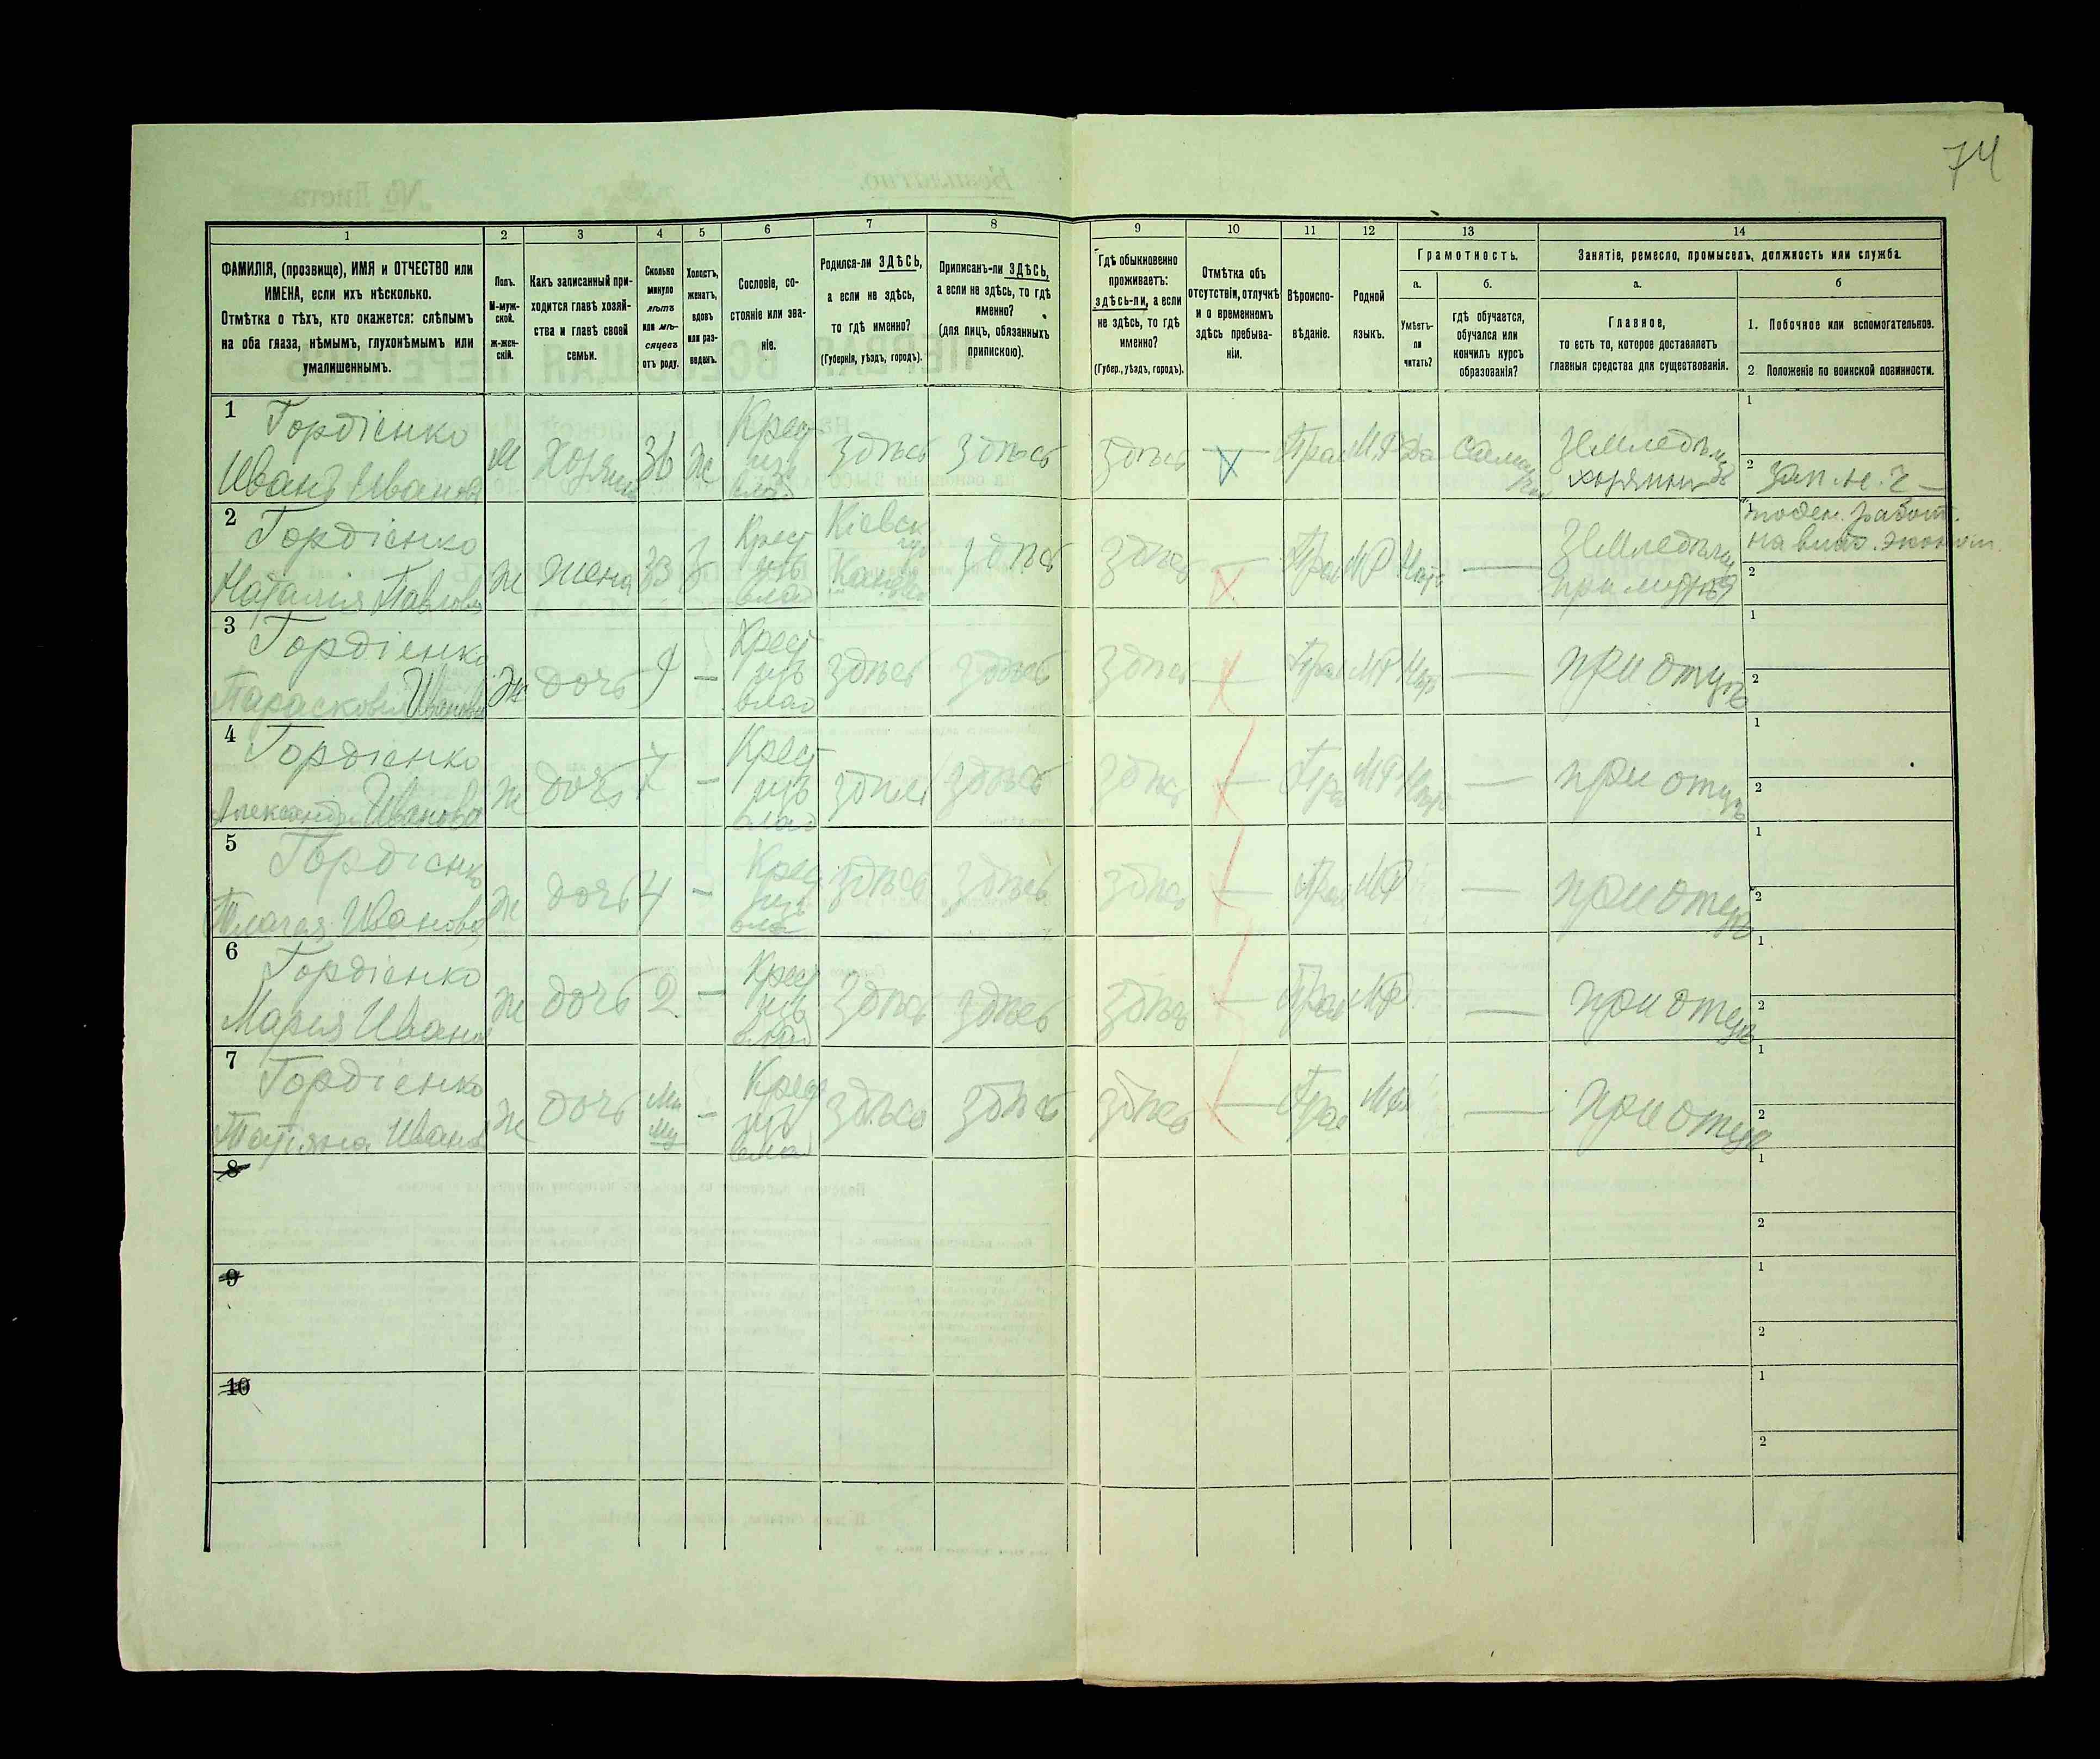 74
1
2
3
4
5
6
7
8
9
10
11
12
13
14
ФАМИЛІЯ, (прозвище), ИМЯ и ОТЧЕСТВО или
ИМЕНА, если ихъ нѣсколько.
Отмѣтка о тѣхъ, кто окажется: слѣпымъ
на оба глаза, нѣмымъ, глухонѣмымъ или
умалишеннымъ.
Полъ.
М-муж-
ской.
ж-жен-
скій.
Какъ записанный при-
ходится главѣ хозяй-
ства и главѣ своей
семьи.
Сколько
минуло
лѣтъ
или мѣ-
сяцевъ
отъ роду.
Холостъ,
женатъ,
вдовъ
или раз-
веденъ.
Сословіе, со-
стояніе или зва-
ніе.
Родился-ли ЗДѢСЬ,
а если не здѣсь,
то гдѣ именно?
(Губернія, уѣздъ, городъ).
Приписанъ-ли ЗДѢСЬ,
а если не здѣсь, то гдѣ
именно?
(для лицъ, обязанныхъ
припискою).
Гдѣ обыкновенно
проживаетъ:
здѣсь-ли, а если
не здѣсь, то гдѣ
именно?
(Губер., уѣздъ, городъ).
Отмѣтка объ
отсутствіи, отлучкѣ
и о временномъ
здѣсь пребыва-
ніи.
Вѣроиспо-
вѣданіе.
Родной
языкъ.
Грамотность.
а.
Умѣетъ-
ли
читать?
б.
гдѣ обучается,
обучался или
кончилъ курсъ
образованія?
Занятіе, ремесло, промыселъ, должность или служба.
а.
Главное,
то есть то, которое доставляетъ
главныя средства для существованія.
б
1. Побочное или вспомогательное.
2 Положеніе по воинской повинности.
1
Гордіенко
Иванъ Иванов
М
Хозяин
36
ж
Крест
изъ
влад
здѣсь
здѣсь
здѣсь
—
Прав
М.Р
Да
Земледѣлец
хозяинъ
1
2
зап. н. ч —
2
Гордіенко
Наталія Павлова
ж
жена
33
З
Крест
изъ
влад
Кіевск
губ
здѣсь
здѣсь
—
Прав
МР
Нѣтъ
—
Земледѣлие
при мужѣ
1
поден. работ.
на влад. эконом.
2
3
Гордіенко
Парасковія Иванова
ж
дочь
9
—
Крест
изъ
влад
здѣсь
здѣсь
здѣсь
—
Прав
МР
Нѣтъ
—
при отцѣ
1
2
4
Гордіенко
Александра Иванова
ж
дочь
7
—
Крест
изъ
влад
здѣсь
здѣсь
здѣсь
—
Прав
МР
Нѣтъ
—
при отцѣ
1
2
5
Гордіенко
Иванова
ж
дочь
4
—
Крест
изъ
влад
здѣсь
здѣсь
здѣсь
—
Прав
МР
—
при отцѣ
1
2
6
Гордіенко
Марія Иван
ж
дочь
2
—
Крест
изъ
влад
здѣсь
здѣсь
здѣсь
—
Прав
МР
—
при отцѣ
1
2
7
Гордіенко
Татіяна Иванов
ж
дочь
—
Крест
изъ
влад
здѣсь
здѣсь
здѣсь
—
Прав
МР
—
при отцѣ
1
2
8
1
2
9
1
2
10
1
2